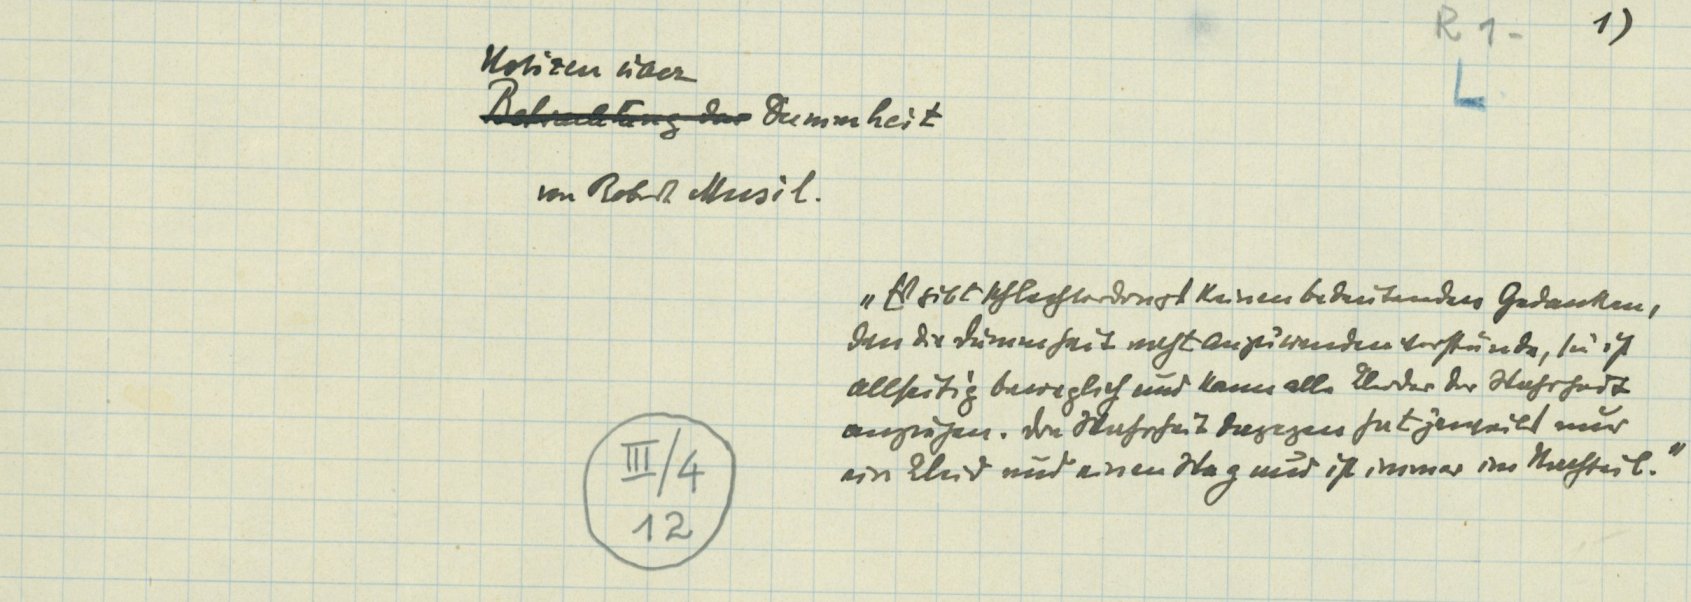 R 1-
1)
L
Notizen über
Betrachtung der Dummheit
von Robert Musil.
„Es gibt schlechterdings keinen bedeutenden Gedanken,
den die Dummheit nicht anzuwenden verstünde, sie ist
allseitig beweglich und kann alle Kleider der Wahrheit
anziehen. Die Wahrheit dagegen hat jeweils nur
ein Kleid und einen Weg und ist immer im Nachteil.“
III/4
12